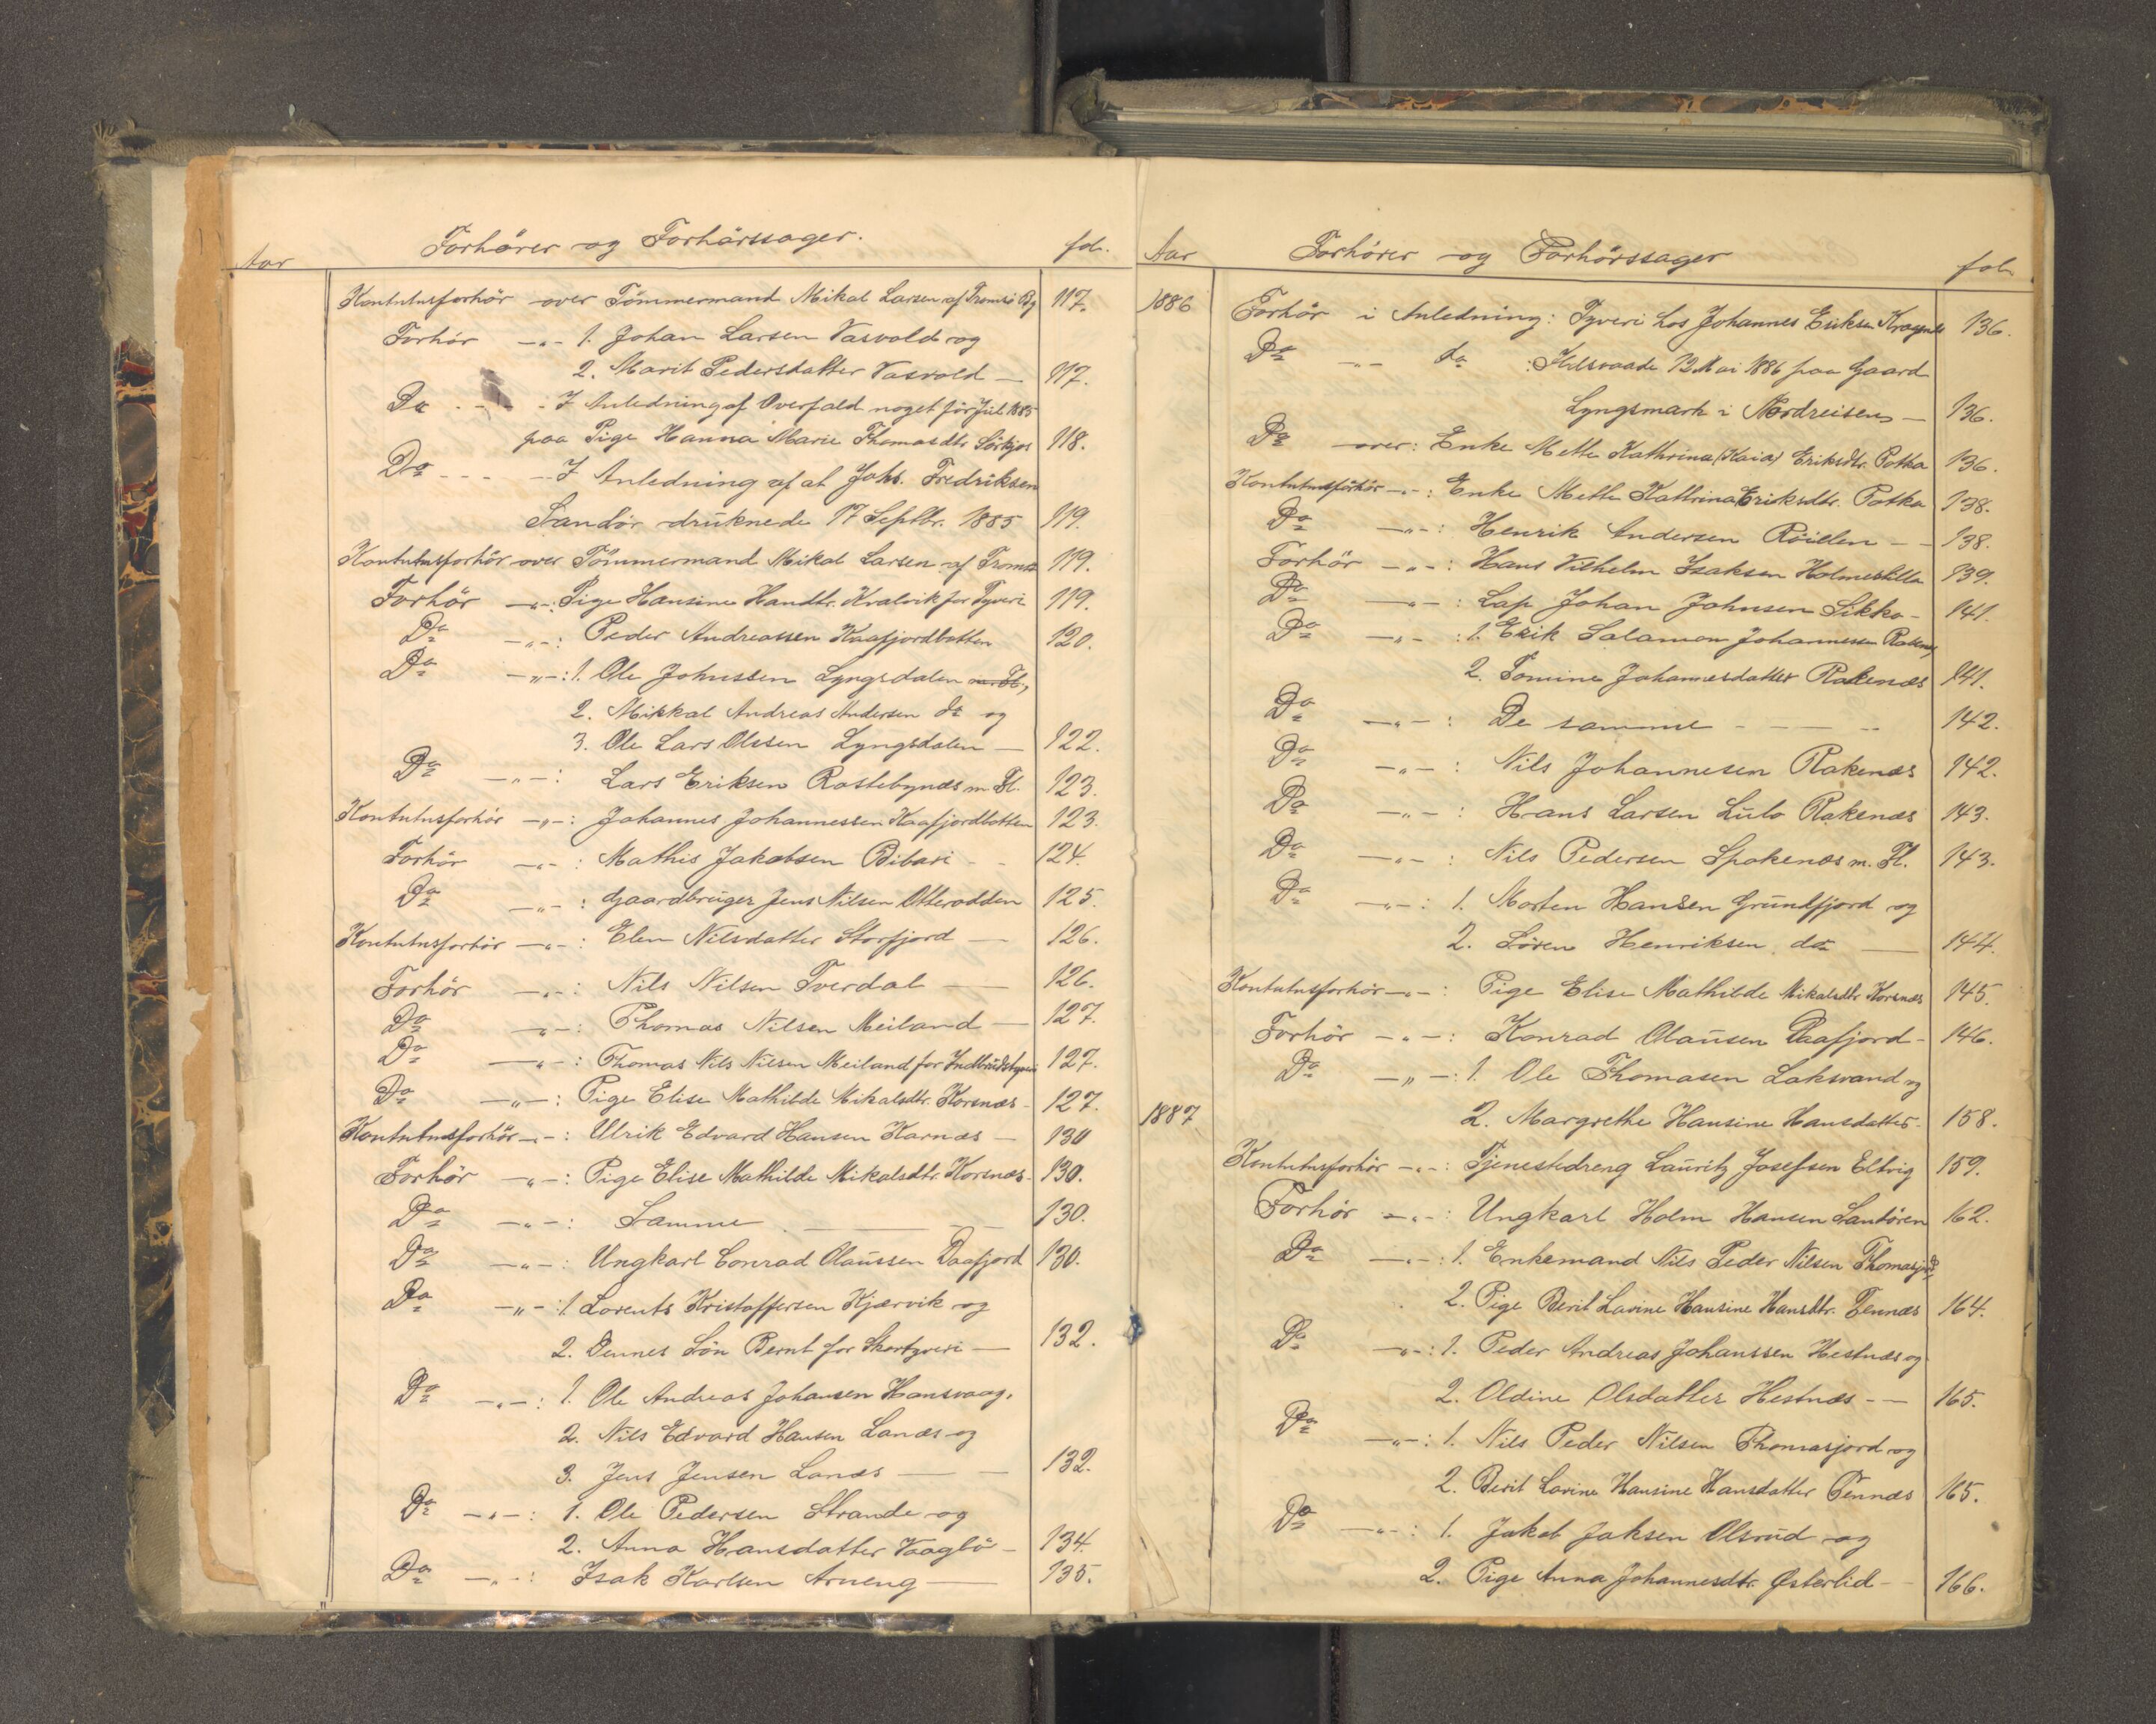 Aar Forhörer og Forhörssager. fol.
Kontutnsforhör over Tömmermand Mikal Larsen af Tromsö By 117.
Forhör -„- 1. Johan Larsen Vasvold og
2. Marit Pedersdatter Vasvold — 117.
Do - I Anledning af Overfald noget för Jul 1885
paa Pige Hanna Marie Thomasdtr. Sörkjos 118.
Do - - - - I Anledning af at Johs. Fredriksen
Sandör druknede 17 Septbr. 1885 119.
Kontutnsforhör over Tömmermand Mikal Larsen af Tromsö 119.
Forhör -„-: Pige Hansine Handtr. Kvalvik for Tyveri 119.
Do -„-: Peder Andreassen Kaafjordbotten 120.
Do -„-: 1. Ole Johnssen Lyngsdalen m. Fl.,
2. Mikkal Andreas Andersen do og
3. Ole Lars Olssen Lyngsdalen — 122.
Do -„-: Lars Eriksen Rastebynæs m. Fl. 123.
Kontutnsforhör -„-: Johannes Johannessen Kaafjordbotten 123.
Forhör -„-: Mathis Jakobsen Bibari - - 124.
Do -„-: Gaardbruger Jens Nilsen Otterodden 125.
Kontutnsforhör -„-: Elen Nilsdatter Storfjord — 126.
Forhör -„-: Nils Nilsen Tverdal — 126.
Do -„-: Thomas Nilsen Meiland — 127.
Do -„-: Thomas Nils Nilsen Meiland for Indbrudstyveri 127.
Do -„-: Pige Elise Mathilde Mikalsdtr. Korsnæs - 127.
Kontutnsforhör -„-: Ulrik Edvard Hansen Karnæs — 130
Forhör -„-: Pige Elise Mathilde Mikalsdtr. Korsnæs - 130.
Do -„-: Samme — 130.
Do -„-: Ungkarl Conrad Olaussen Daafjord 130.
Do -„-: 1. Lorents Kristoffersen Kjærvik og
2. Dennes Sön Bernt for Skovtyveri — 132.
Do -„-: 1. Ole Andreas Johansen Hansvaag,
2. Nils Edvard Hansen Lanæs og
3. Jens Jensen Lanæs — 132.
Do -„-: 1. Ole Pedersen Strande og
2. Anna Hansdatter Vaagbö - 134.
Do -„-: Isak Karlsen Arneng — 135.
Aar Forhörer og Forhörssager fol.
1886 Forhör i Anledning: Tyveri hos Johannes Eriksen Kragnæs 136.
Do -„- do : Ildsvaade 12 Mai 1886 paa Gaard
Lyngsmark i Nordreisen — 136.
Do over: Enke Mette Kathrina (Kaia) Eriksdtr. Potka 136.
Kontutnsforhör -„-: Enke Mette Kathrina Eriksdtr. Potka 138.
Do -„-: Henrik Andersen Röielen - - 138.
Forhör -„-: Hans Vilhelm Isaksen Holmeslille 139.
Do -„-: Lap Johan Johnsen Sikko - 141.
Do -„-: 1. Erik Salamon Johannessen Rakenæs
2. Tomine Johannesdatter Rakenæs 141.
Do -„-: De samme — 142.
Do -„-: Nils Johannesen Rakenæs 142.
Do -„-: Hans Larsen Lulo Rakenæs 143.
Do -„-: Nils Pedersen Spakenæs m. Fl. 143.
Do -„-: 1. Morten Hansen Grundfjord og
2. Sören Henriksen do — 144.
Kontutnsforhör -„-: Pige Elise Mathilde Mikalsdtr. Korsnæs 145.
Forhör -„-: Konrad Olausen Daafjord - 146.
Do -„-: 1. Ole Thomasen Laksvand og
1887 2. Margrethe Hansine Hansdatter - 158.
Kontutnsforhör -„-: Tjenestedreng Lauritz Josefsen Eltvig 159.
Forhör -„-: Ungkarl Holm Hansen Santören 162.
Do -„-: 1. Enkemand Nils Peder Nilsen Thomasjd
2. Pige Berit Lavine Hansine Hansdtr. Tennæs 164.
Do -„-: 1. Peder Andreas Johanssen Hestnæs og
2. Oldine Olsdatter Hestnæs - — 165.
Do -„-: 1. Nils Peder Nilsen Thomasjord og
2. Berit Lavine Hansine Hansdatter Tennæs 165.
Do -„-: 1. Jakob Jaksen Olsrud og
2. Pige Anna Johannesdtr. Østerlid - 166.